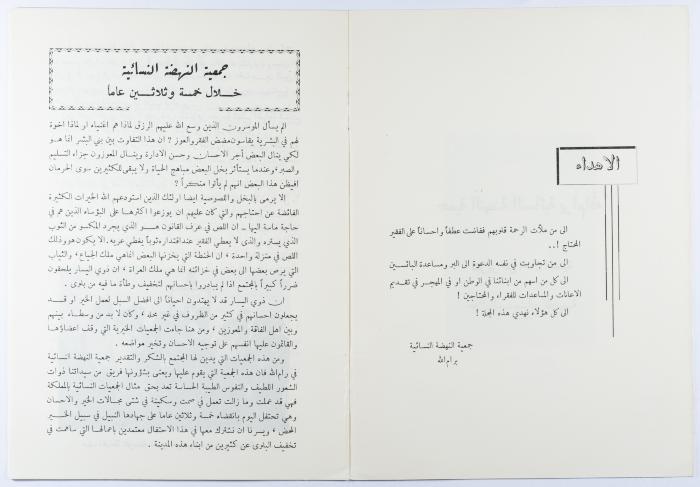 الاهداء
الى من ملأت الرحمة قلوبهم ففاضت عطفاً واحساناً على الفقير
المحتاج !..
الى من تجاوبت في نفسه الدعوة الى البر ومساعدة البائسين
الى كل من اسهم من ابنائنا في الوطن او في المهجر في تقديم
الاعانات والمساعدات للفقراء والمحتاجين !
الى كل هؤلاء نهدي هذه المجلة !
جمعية النهضة النسائية
برام الله
جمعية النهضة النسائية
خلال خمسة وثلاثين عاما
الم يسأل الموسرون الذين وسع الله عليهم الرزق لماذا هم اغنياء او لماذا اخوة
لهم في البشرية يقاسون مضض الفقر والعوز ؟ ان هذا التفاوت بين بني البشر انما هو
لكي ينال البعض أجر الاحسان وحسن الادارة وينال المعوزون جزاء التسليم
والصبر، وعندما يستأثر بخل البعض مباهج الحياة ولا يبقى للكثيرين سوى الحرمان
افيظن هذا البعض انهم لم يأتوا منكراً ؟
الا يرمى بالبخل واللصوصية ايضا اولئك الذين استودعهم الله الخيرات الكثيرة
الفائضة عن احتاجهم والتي كان عليهم ان يوزعوا اكثرها على البؤساء الذين هم في
حاجة ماسة اليها ـ ان اللص في عرف القانون هو الذي يجرد المكسو من الثوب
الذي يستره والذي لا يعطي الفقير عند اقتداره ثوباً يغطي عريه. الا يكون هو وذلك
اللص في منزلة واحدة ، ان الحنطة التي يخزنها البعض انما هي ملك الجياع، والثياب
التي يرص بعضها الى بعض في خزائنه انما هي ملك العراة ، ان ذوي اليسار يلحقون
ضرراً كبيراً بالمجتمع اذا لم يبادروا باحسانهم لتخفيف وطأة ما فيه من بلوى .
ان ذوي اليسار قد لا يهتدون احياناً الى افضل السبل لعمل الخير او قد
يجعلون احسانهم في كثير من الظروف في غير محله ، وكان لا بد من وسطاء بينهم
وبين اهل الفاقة والمعوزين ، ومن هنا جاءت الجمعيات الخيرية التي وقف اعضاؤها
والقائمون عليها انفسهم على توجيه الاحسان وتخير مواضعه .
ومن هذه الجمعيات التي يدين لها المجتمع بالشكر والتقدير جمعية النهضة النسائية
في رام الله فان هذه الجمعية التي يقوم عليها ويعنى بشؤونها فريق من سيداتنا ذوات
الشعور اللطيف والنفوس الطيبة الحساسة تعد بحق مثال الجمعيات النسائية بالمملكة
فهي قد عملت وما زالت تعمل في صمت وسكينة في شتى مجالات الخير والاحسان
وهي تحتفل اليوم بانقضاء خمسة وثلاثين عاما على جهادها النبيل في سبيل الخير
المحض ، ويسرنا ان نشترك معها في هذا الاحتفال معتمدين باعمالها التي ساهمت في
تخفيف البلوى عن كثيرين من ابناء هذه المدينة .